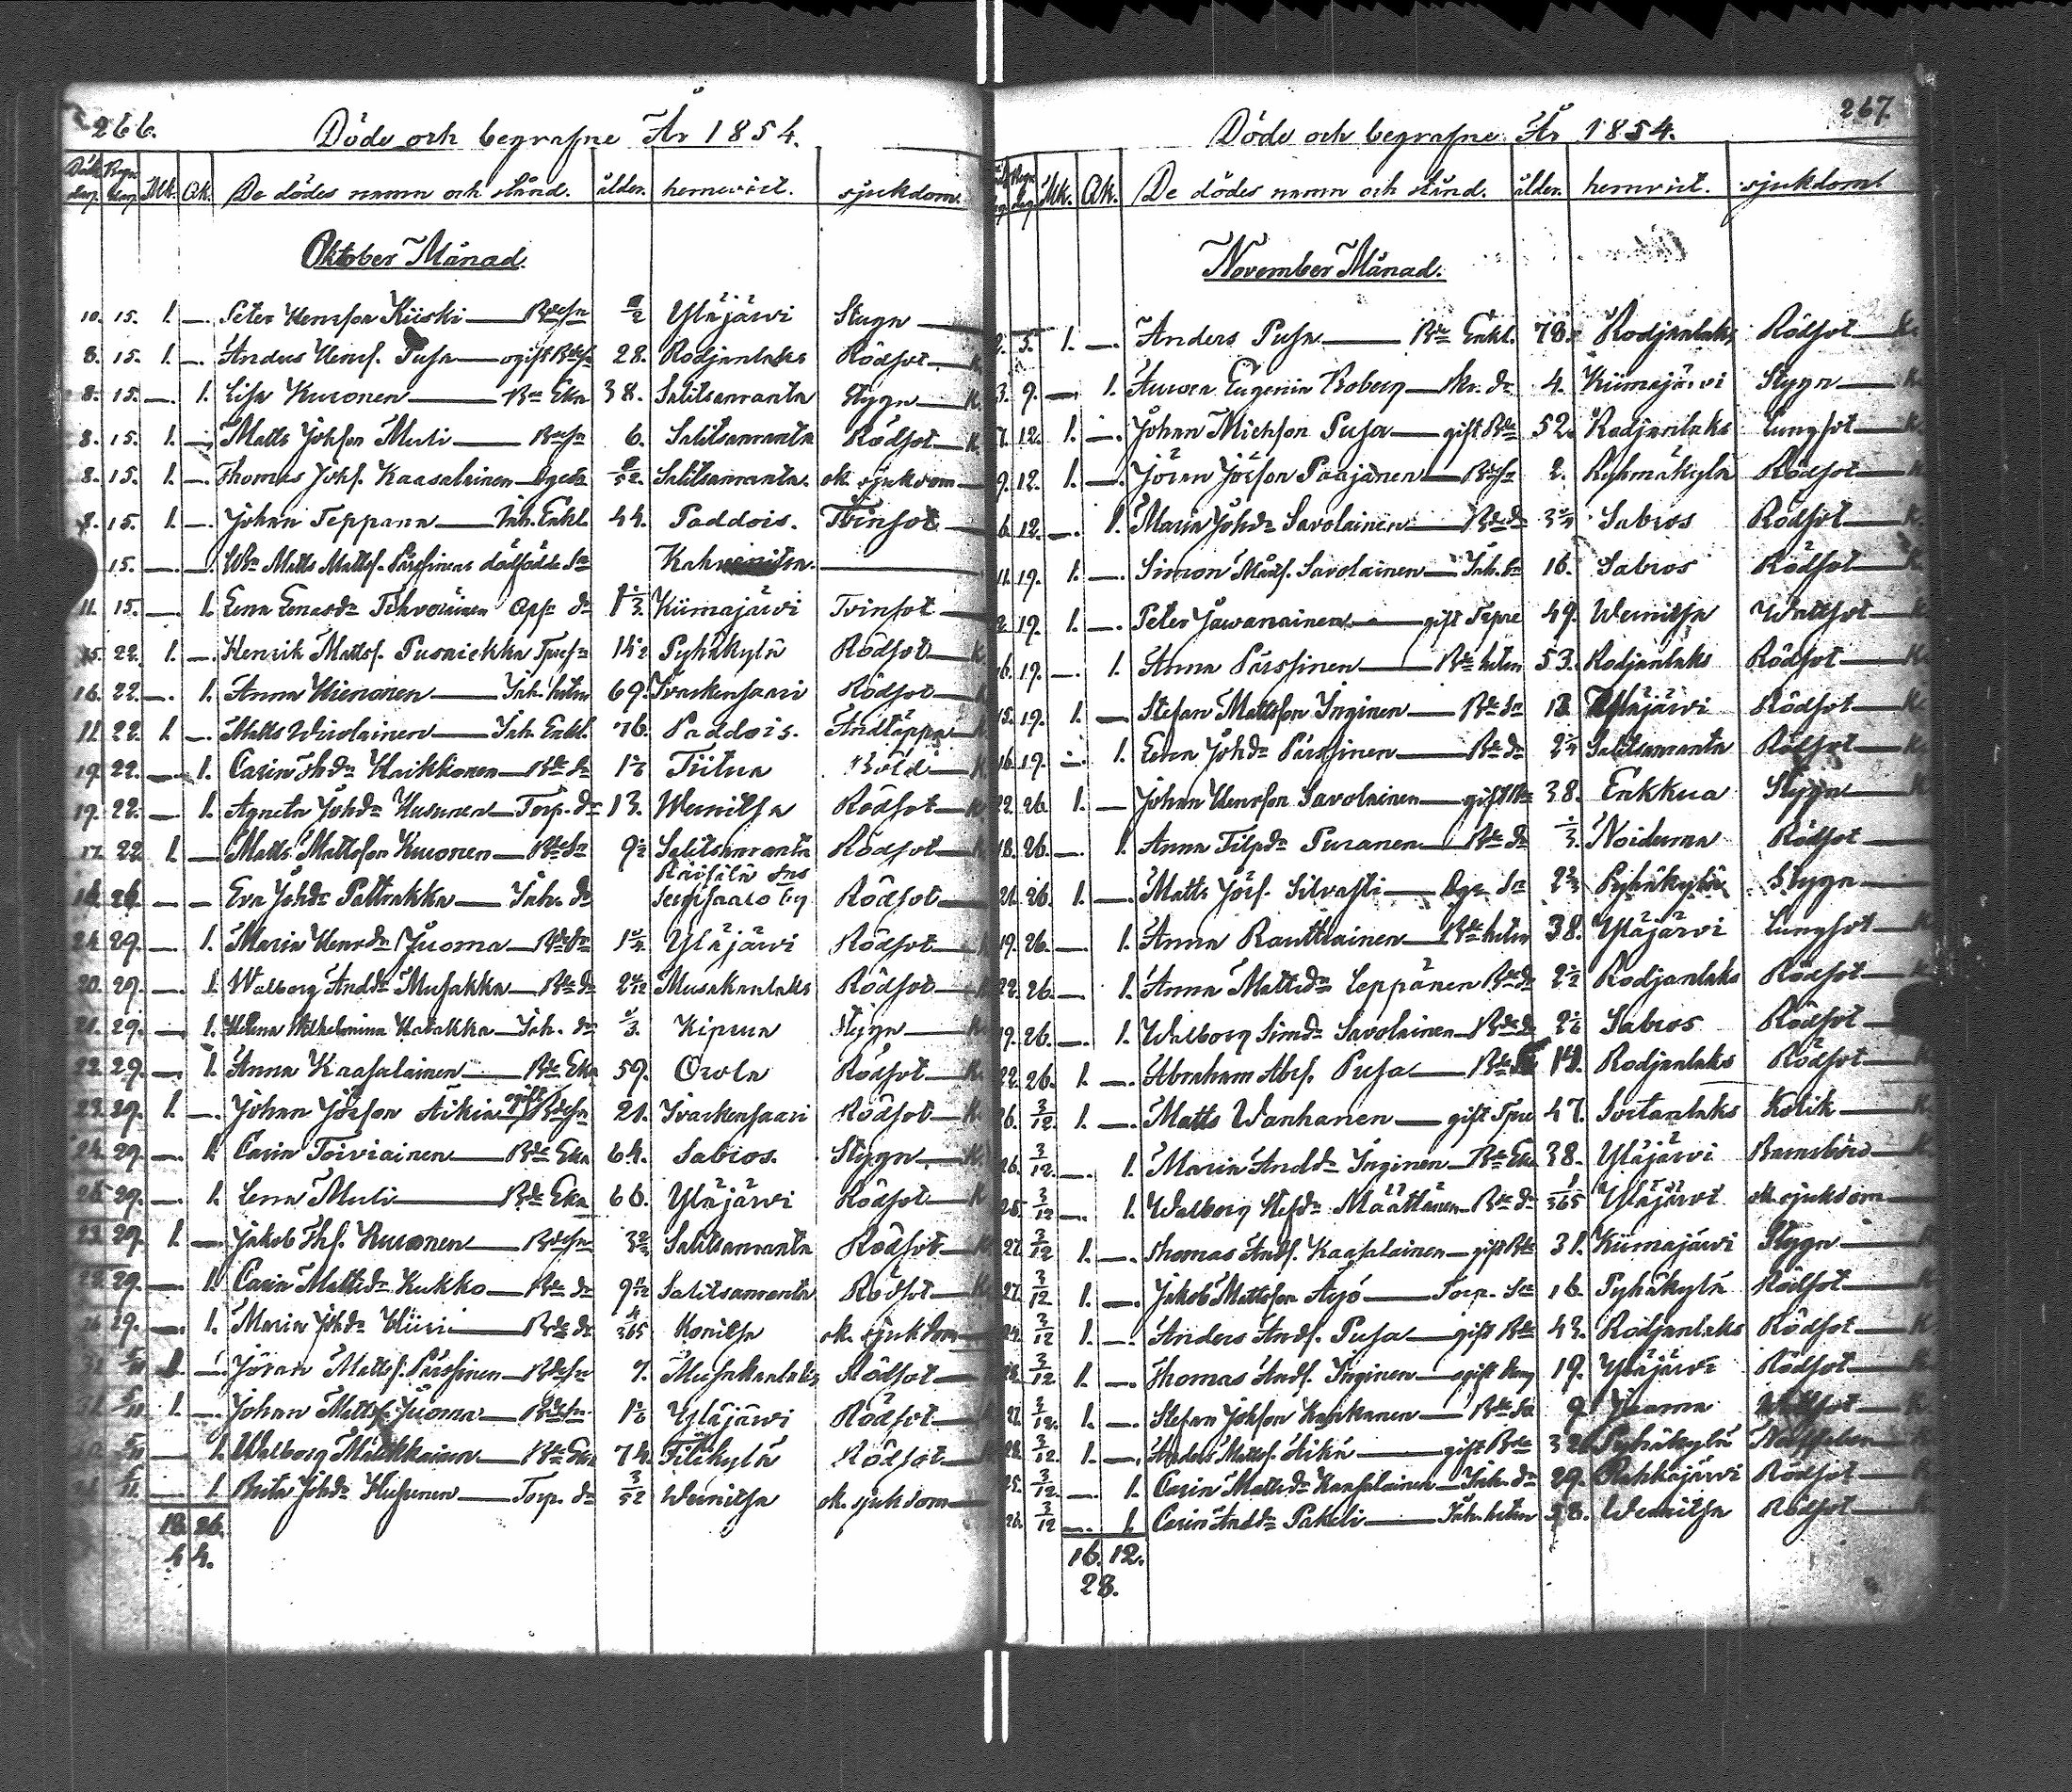 266.
Döde och begrafne År 1854.
Död dag. Begr. dag. Mk. Qk. De dödes namn och stånd. ålder. hemvist. sjukdom.
Oktober Månad.
10. 15. 1. — Peter Henrsson Kiiski — Bdesn Yläjärvi Stygn
8. 15. 1. — Anders Henrs. Pusa — ogift Bdesn 28. Rodjanlaks Rödsot K.
8. 15. — 1. Lisa Kuronen — Bde Eka 38. Salitsanranta Stygn K.
8. 15. 1. — Matts Johsson Muli — Bdesn 6. Salitsanranta Rödsot K.
8. 15. 1. — Thomas Johs. Kaasalainen 52. Salitsanranta. ok. sjukdom
8. 15. 1. — Johan Teppana — Inh. Enkl. 44. Paddois. Tvinsot
15. — — Matts Matts. Pärssinens dödfödde Sn
11. 15. — 1. Tihvoinen dr 1 1/3. Kiimajärvi Tvinsot
15. 22. 1. — Henrik Matts. Pusaickka 14 1/2 Pyhäkylä Rödsot K.
16. 22. — 1. Anna Hienonen — Inh. 69. Ivaskensaari Rödsot
11. 22. 1. — Matts Wirolainen — Inh. Enkl. 76. Paddois. Andtäppa K.
19. 22. — 1. Carin Thdr Haikkonen — Bde dr 1 Tiitua Böld K.
19. 22. — 1. Agneta Johdr Husunen — Torp. dr 13. Weinitsa Rödsot K.
17. 22. 1. — Matts Mattsson Kuronen — Bde Sn 9 1/2 Salitsanranta Rödsot K.
Räisälä Sns
— — Eva Johdr Pattrakka — Inh. dr Rödsot
24. 29. — 1. Maria Henrdr Juoma — Bde dr Yläjärvi Rödsot
20. 29. — 1. Walborg Anddr Musakka — Bde dr Musakanlaks Rödsot
21. 29. — 1. Helena Wilhelmina Hatakka — Inh. dr Kiprua Stygn K.
22. 29. — 1. Anna Kaasalainen — Bde Eka 59. Orola Rödsot K.
23. 29. 1. — Johan Jörsson Äikiä ogift Bdesn 21. Ivaskensaari Rödsot K.
24. 29. — 1. Carin Toiviainen — Bde Eka 64. Sabros. Stygn K.
25. 29. — 1. Lena Muli — Bde Eka 66. Yläjärvi Rödsot K
23. 29. 1. — Jakob Ths. Kuronen — Bdesn 3 Salitsanranta Rödsot K.
29. — 1. Carin Mattsdr Kukko — Bde dr 9 Salitsanranta Rödsot K.
29. — 1. Maria Johdr Hiiri — Bde dr 4/365 Konitsa ok. sjukdom
31. 5/11 1. — Jöran Matts. Pärssinen — Bdesn 7. Musakanlaks Rödsot
31. 5/11 1. — Johan Matts. Juoma — Bdesn Yläjärvi Rödsot
5/11 — 1. Walborg — Bde Eka 74. Tiiikylä Rödsot
5/11 — 1. Brita Johdr Husunen — Torp. dr 3/52 Weinitsa ok. sjukdom
18. 26.
44.
267.
Döde och begrafne År 1854.
Mk. Qk. De dödes namn och stånd. ålder. hemvist. sjukdom.
November Månad.
2. 5. 1. — Anders Pusa — Bde Enkl. 78. Rodjanlaks Rödsot K.
3. 9. — 1. Aurora Eugenia Boberg dr 4. Kiimajärvi Stygn K.
7. 12. 1. — Johan Michsson Pusa — gift Bde 52. Rodjanlaks Lungsot K.
9. 12. 1. — Jöran Jörsson Paajanen — Bdesn 2. Ryhmäkylä Rödsot K
6. 12. — 1. Maria Johdr Savolainen — Bde dr Sabros Rödsot K.
11. 19. 1. — Simon Savolainen — Inh. Sn 16. Sabros Rödsot K.
19. 1. — Peter Jawanainen — gift 49. Weinitsa Wattsot K
16. 19. — 1. Anna Pärssinen — Bde 53. Rodjanlaks Rödsot K.
15. 19. 1. — Stefan Mattsson Inginen — Bde Sn Yläjärvi Rödsot K.
16. 19. — 1. Eeva Johdr Pärssinen — Bde dr Salitsanranta Rödsot K.
22. 26. 1. — Johan Henrsson Savolainen — gift Bde 38. Enkkua Stygn K
18. 26. — 1. Anna Filpdr Puranen — Bde dr Noiderma Rödsot
21. 26. 1. — Matts Jörs. Silvasti Sn Pyhäkylä Stygn
19. 26. — 1. Anna Rauttiainen — Bde 38. Yläjärvi Lungsot K
22. 26. — 1. Anna Mattsdr Leppänen Bde dr Rodjanlaks Rödsot K
19. 26. — 1. Walborg Simdr Savolainen — Bde dr Sabros Rödsot
22. 26. 1. — Abraham Abrs. Pusa — Bde 14. Rodjanlaks Rödsot K
26. 3/12. 1. — Matts Wanhanen — gift 47. Kolik K
26. 3/12. — 1. Maria Anddr Inginen — Bde Eka 38. Yläjärvi Barnsbörd K
25. 3/12 — 1. Walborg Stefdr Määttänen — Bde dr 1/365 Yläjärvi ok. sjukdom
27. 3/12 1. — Thomas Ands. Kaasalainen — gift Bde 31. Kiimajärvi Stygn
27. 3/12 1. — Jakob Mattsson Äijö — Torp. Sn 16. Pyhäkylä Rödsot K
24. 3/12 1. — Anders Ands. Pusa — gift Bde 43. Rodjanlaks Rödsot K
3/12 1. — Thomas Ands. Inginen 19. Yläjärvi Rödsot K
27. 3/12. 1. — Stefan Johsson — Bde Sn 9. Juoma
28. 3/12. 1. — Anders Matts. Äikiä — gift Bde 32. Pyhäkylä
25. 3/12. — 1. Carin Mattsdr Kaasalainen — Inh. dr 29. Rahkajärvi Rödsot K
26. 3/12 — 1. Carin Anddr Pakeli — Inh. 58. Weinitsa Rödsot K
16. 12.
28.